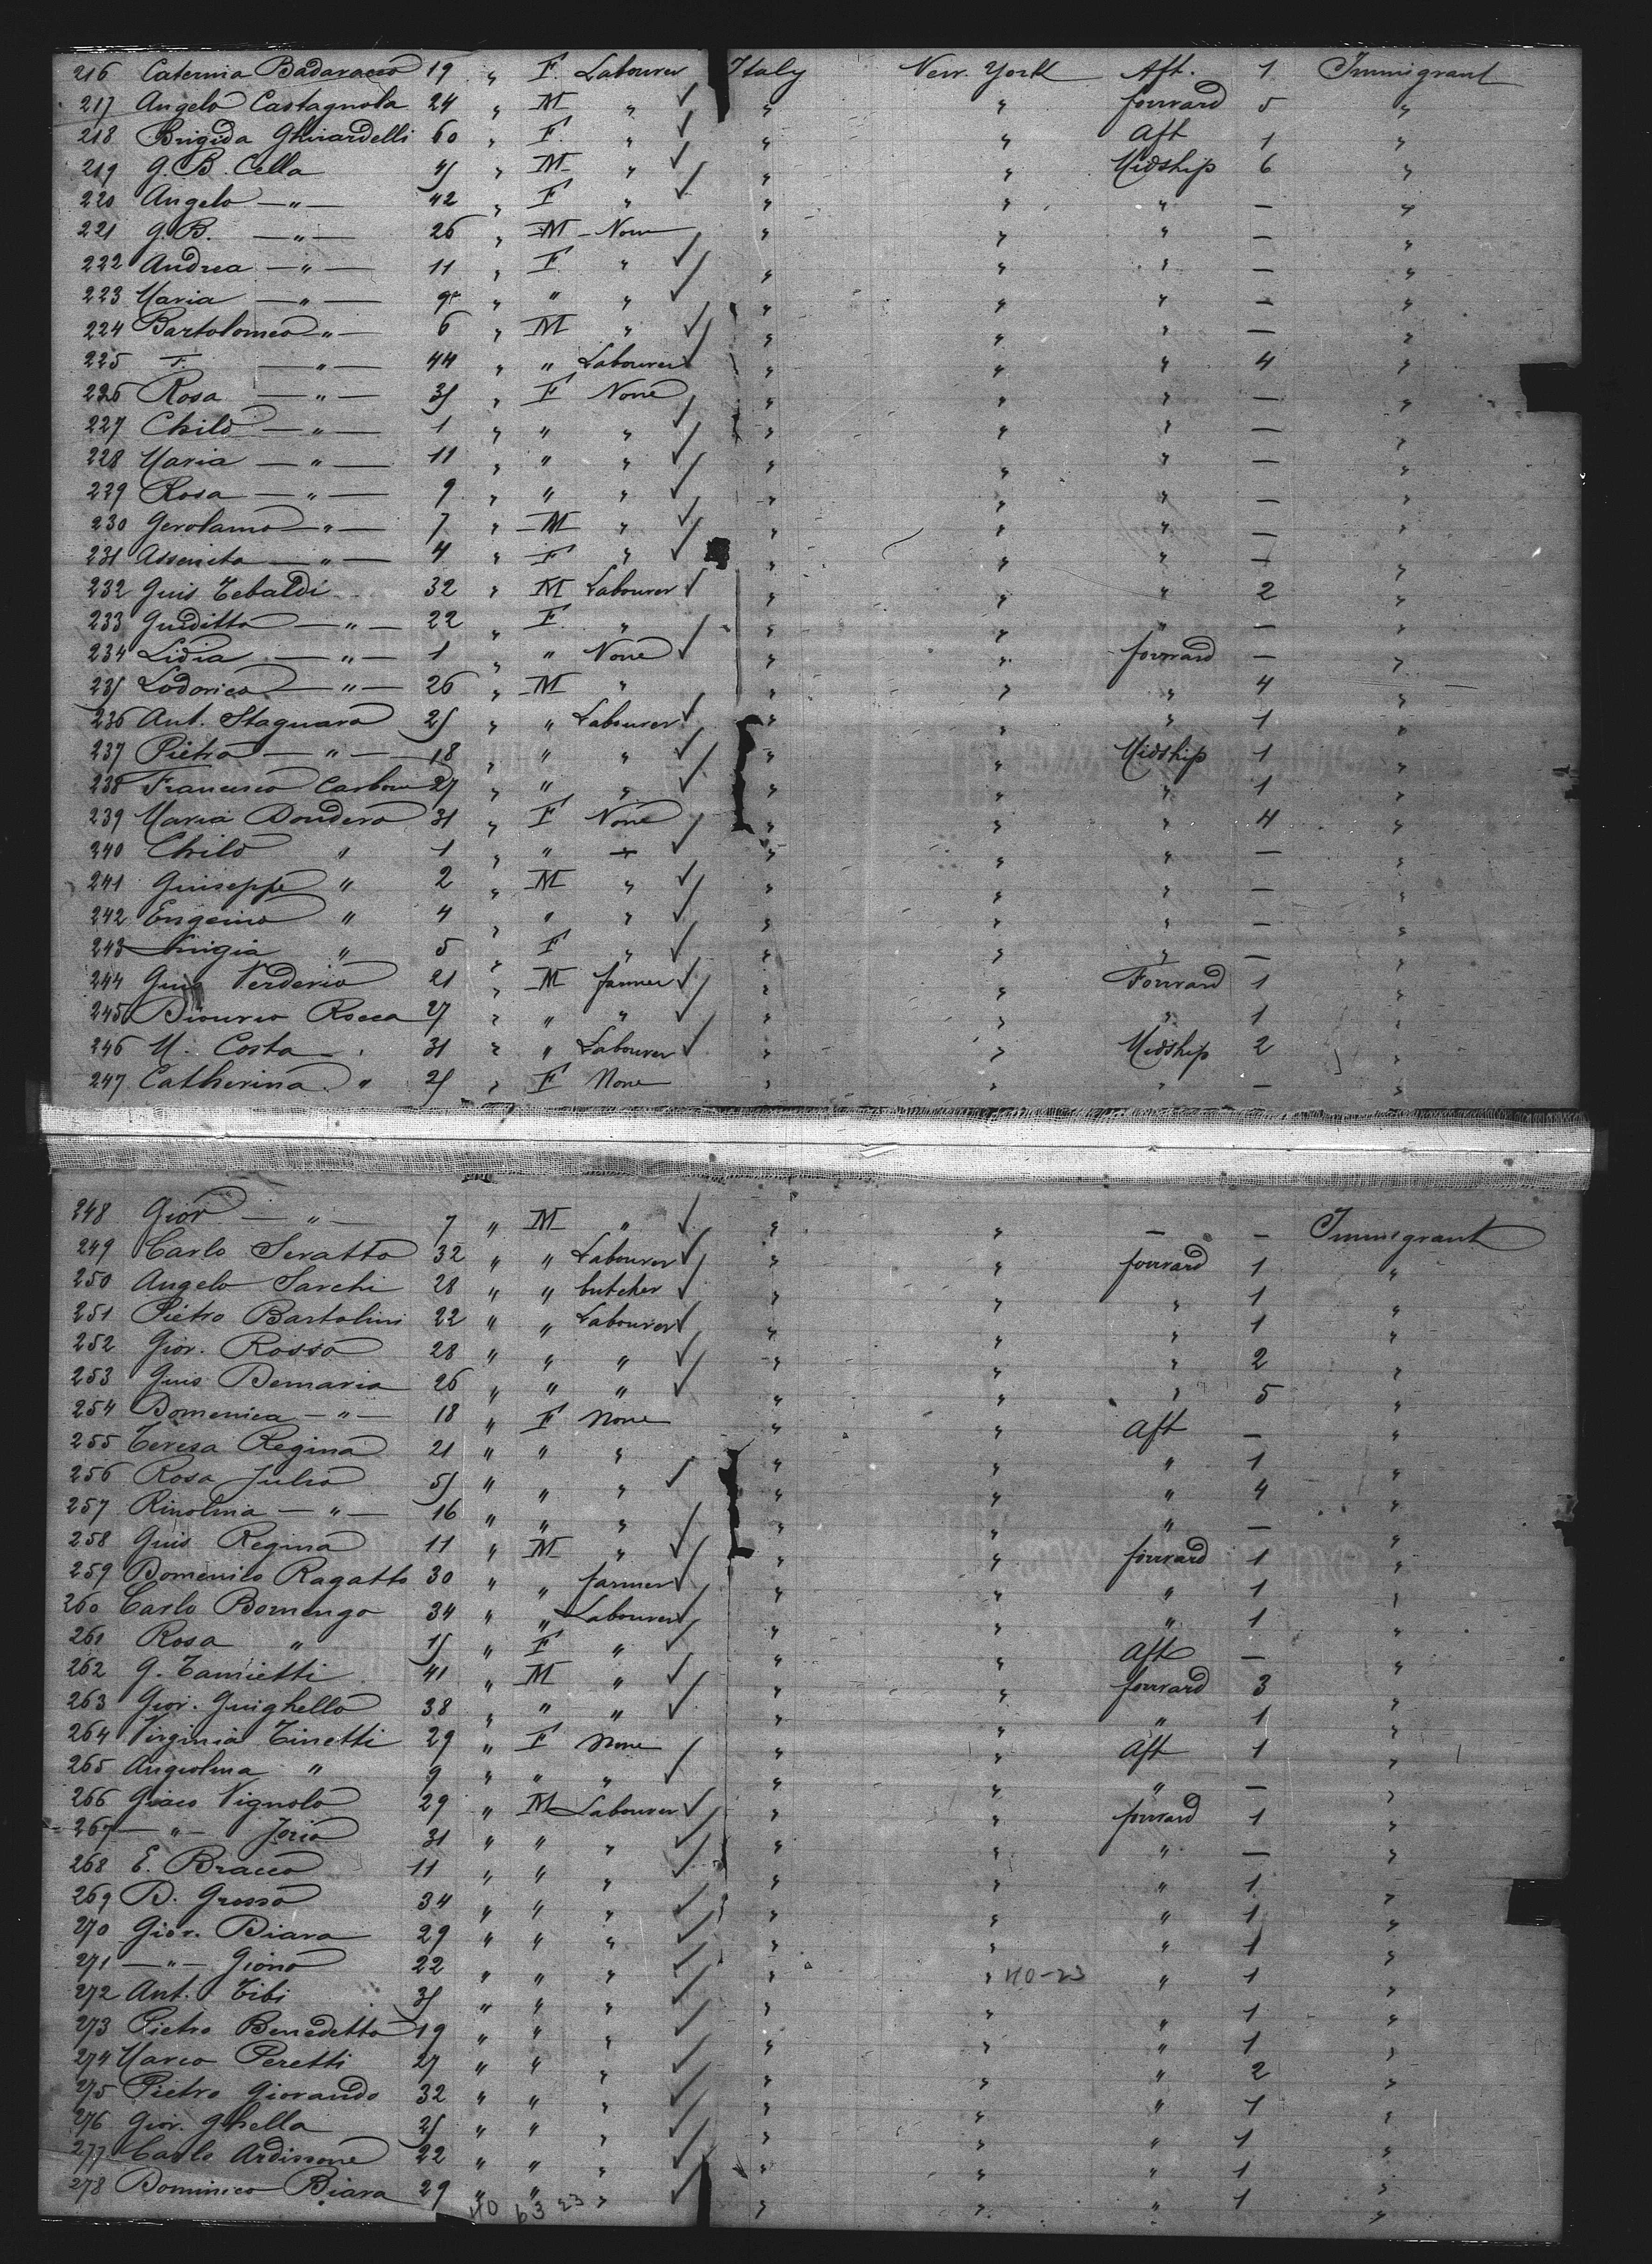 216 Caterina Badaracco 19 " F. Labourer Italy New. York Aft. 1 Immigrant
217 Angelo Castagnola 24 " M " ✓ " " forward 5 "
218 Brigida Ghirardelli 60 " F. " ✓ " " Aft 1 "
219 G. B. Cella 45 " M " ✓ " " Midship 6 "
220 Angela — " — 42 " F " ✓ " " " — "
221 G. B. — " — 26 " M None " " " — "
222 Andrea — " — 11 " F. " ✓ " " " — "
223 Maria — " — 9 " " " ✓ " " " — "
224 Bartolomeo — " — 6 " M " ✓ " " " — "
225 F. — " — 44 " " Labourer ✓ " " " 4 "
226 Rosa — " — 35 " F None " " " — "
227 Child — " — 1 " " " ✓ " " " — "
228 Maria — " — 11 " " " ✓ " " " — "
229 Rosa — " — 9 " " " ✓ " " " — "
230 Gerolamo — " — 7 " M " ✓ " " " — "
231 Assunta — " — 4 " F " ✓ " " " — "
232 Guis Tebaldi 32 " M Labourer ✓ " " " 2 "
233 Guiditta — " — 22 " F. " " " " — "
234 Lidia — " — 1 " " None ✓ " " forward — "
235 Lodovico — " — 26 " M " " " " 4 "
236 Ant. Stagnaro 25 " " Labourer ✓ " " " 1 "
237 Pietro — " — 18 " " " ✓ " " Midship 1 "
238 Francesco Carbone 27 " " " ✓ " " " 1 "
239 Maria Dondero 31 " F None " " " 4 "
240 Child " 1 " " " ✓ " " " — "
241 Guiseppe " 2 " M " ✓ " " " — "
242 Eugenio " 4 " " " ✓ " " " — "
243 Luigia " 5 " F " ✓ " " " — "
244 Guis Verderio 21 " M farmer ✓ " " Forward 1 "
245 Rocca 27 " " " ✓ " " " 1 "
246 M. Costa 31 " " Labourer ✓ " " Midship 2 "
247 Catherina " 25 " F None " " " — "
248 Giov — " — 7 " M " ✓ " " — — Immigrant
249 Carlo Seratto 32 " " Labourer ✓ " " forward 1 "
250 Angelo Sarchi 28 " " butcher ✓ " " " 1 "
251 Pietro Bartolini 22 " " Labourer ✓ " " " 1 "
252 Giov. Rosso 28 " " " ✓ " " " 2 "
253 Guis Demaria 26 " " " ✓ " " " 5 "
254 Domenica — " — 18 " F None " " Aft — "
255 Teresa Regina 21 " " " " " " 1 "
256 Rosa Julio 55 " " " ✓ " " " 4 "
257 — " — 16 " " " " " " — "
258 Guis Regina 11 " M " ✓ " " forward 1 "
259 Domenico Ragatto 30 " " farmer ✓ " " " 1 "
260 Carlo Bomengo 34 " " Labourer ✓ " " " 1 "
261 Rosa " 15 " F " ✓ " " Aft — "
262 G. Tamietti 41 " M " ✓ " " forward 3 "
263 Giov. Guighello 38 " " " ✓ " " " 1 "
264 Virginia Tinetti 29 " F None " " Aft 1 "
265 Angiolina " 9 " " " ✓ " " " — "
266 Giaco Vignolo 29 " M Labourer ✓ " " forward 1 "
267 — " — Joria 31 " " " ✓ " " " — "
268 E. Bracco 11 " " " ✓ " " " 1 "
269 D. Grosso 34 " " " ✓ " " " 1 "
270 Giov. Biava 29 " " " ✓ " " " 1 "
271 — " — Giono 22 " " " ✓ " " 40-23 " 1 "
272 Ant. Tibi 35 " " " ✓ " " " 1 "
273 Pietro Benedetto 19 " " " ✓ " " " 1 "
274 Marco Peretti 27 " " " ✓ " " " 2 "
275 Pietro Giorando 32 " " " ✓ " " " 1 "
276 Giov. Ghella 25 " " " ✓ " " " 1 "
277 Carlo Ardissone 22 " " " ✓ " " " 1 "
278 Dominico Biava 29 " " " ✓ " " " 1 "
40 63 23